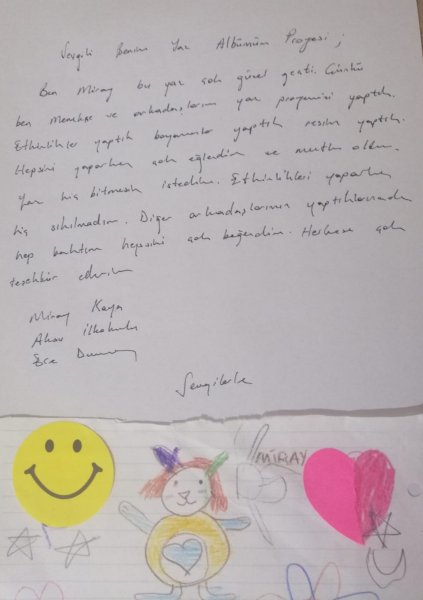 Sevgili Benim Yaz Albümüm Projesi ;
Ben Miray bu yaz çok güzel geçti. Çünkü
ben Menekşe ve arkadaşlarım yaz projemizi yaptık.
Etkinlikler yaptık boyamalar yaptık resim yaptık.
Hepsini yaparken çok eğlendim ve mutlu oldum.
Yaz hiç bitmesin istedim. Etkinlikleri yaparken
hiç sıkılmadım. Diğer arkadaşlarımın yaptıklarınada
hep baktım hepsini çok beğendim. Herkese çok
teşekkür ederim
Miray Kaya
İlkokulu
Ece
Sevgilerle
MİRAY